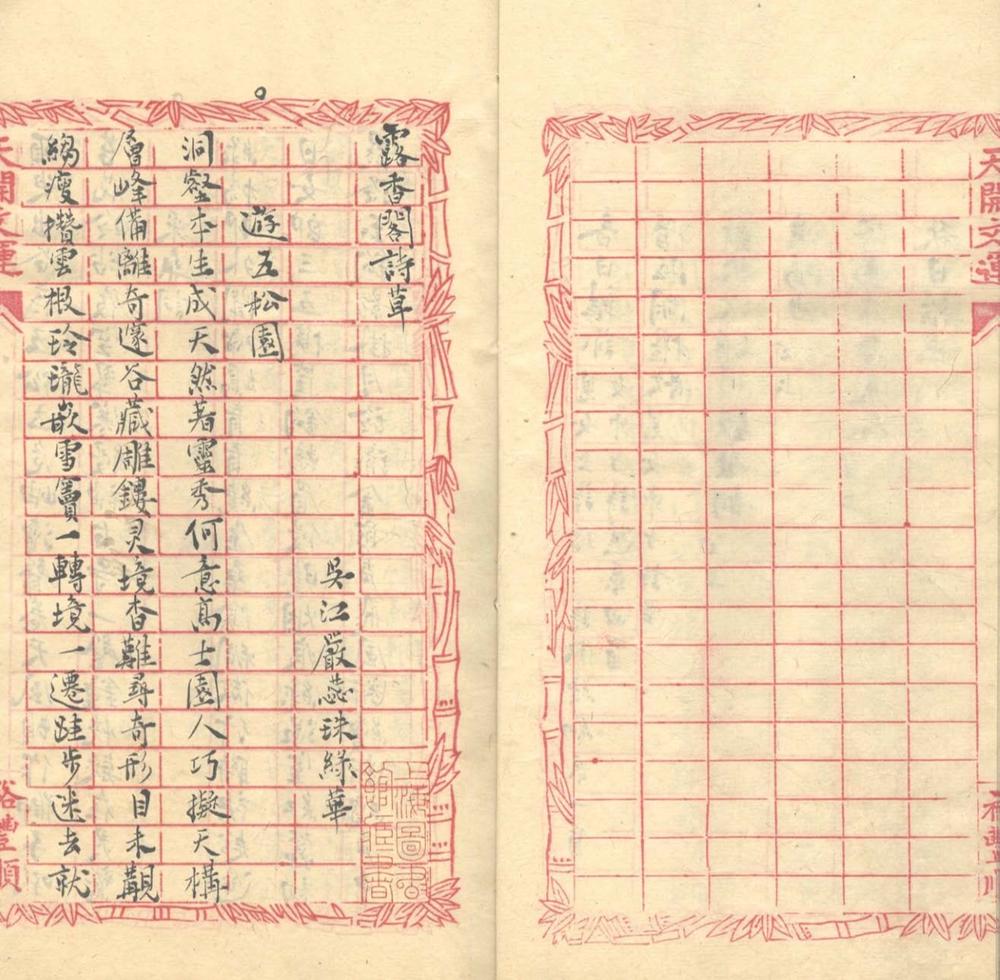 天開文運
裕豐順
露香閣詩草
吳江嚴蕊珠綠華
遊五松園
洞壑本生成天然著靈秀何意高士園人巧擬天構
層峰備離奇邃谷藏雕鏤灵境杳難尋奇形目未覯
縐瘦攢雲根玲瓏嵌雪竇一轉境一遷跬步迷去就
上海圖書館藏書
天開文運
裕豐順